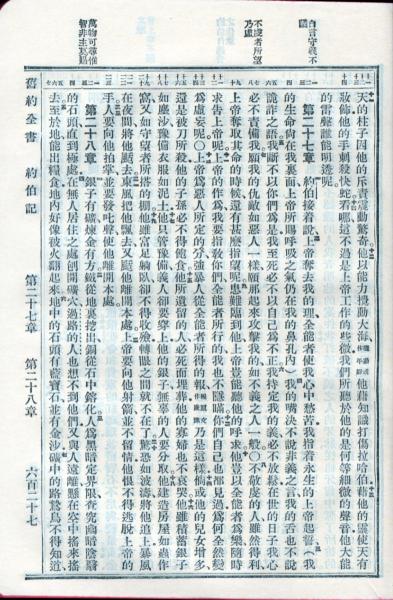 自言守義不
不虔者所望
乃虛
萬物可尋惟
智非主莫賜
天的柱子因他的斥責震動驚奇他以能力攪動大海他藉知識打傷拉哈伯藉他的靈使天有
妝飾他的手刺殺快蛇看哪這不過是上帝工作的些微我們所聽於他的是何等細微的聲音他大能
的雷聲誰能明透呢
第二十七章 約伯接着說上帝奪去我的理全能者使我心中愁苦我指着永生的上帝起誓(我
的生命尚在我裏面上帝所賜呼吸之氣仍在我的鼻孔內)我的嘴決不說非義之言我的舌也不說
詭詐之語我斷不以你們為是我至死必不以自己為不正我持定我的義必不放鬆在世的日子我心
必不責備我願我的仇敵如惡人一樣願那起來攻擊我的如不義之人一般○不敬虔的人雖然得利
上帝奪取其命的時候還有甚麼指望呢患難臨到他上帝豈能聽他的呼求他豈以全能者為樂隨時
求告上帝呢上帝的作為我要指教你們全能者所行的我也不隱瞞你們自己也都見過為何全然變
為虛妄呢○上帝為惡人所定的分強暴人從全能者所得的報乃是這樣倘或他的兒女增多
還是被刀所殺他的子孫必不得飽食他所遺留的人必死而埋葬他的寡婦也不哀哭他雖積蓄銀子
如塵沙預備衣服如泥土他只管預備義人卻要穿上他的銀子無辜的人要分取他建造房屋如蟲作
窩又如守望者所搭的棚他雖富足躺臥卻不得收殮轉眼之間就不在了驚恐如波濤將他追上暴風
在夜間將他颳去東風把他飄去又颳他離開本處上帝要向他射箭並不留情他恨不得逃脫上帝的
手人要向他拍掌並要發叱聲使他離開本處
第二十八章 銀子有礦煉金有方鐵從地裏挖出銅從石中鎔化人為黑暗定界限查究幽暗陰翳
的石頭直到極處在無人居住之處刨開礦穴過路的人也想不到他們又與人遠離懸在空中搖來搖
去至於地能出糧食地內好像被火翻起來地中的石頭有藍寶石並有金沙礦中的路鷙鳥不得知道
舊約全書 約伯記 第二十七章 第二十八章 六百二十七